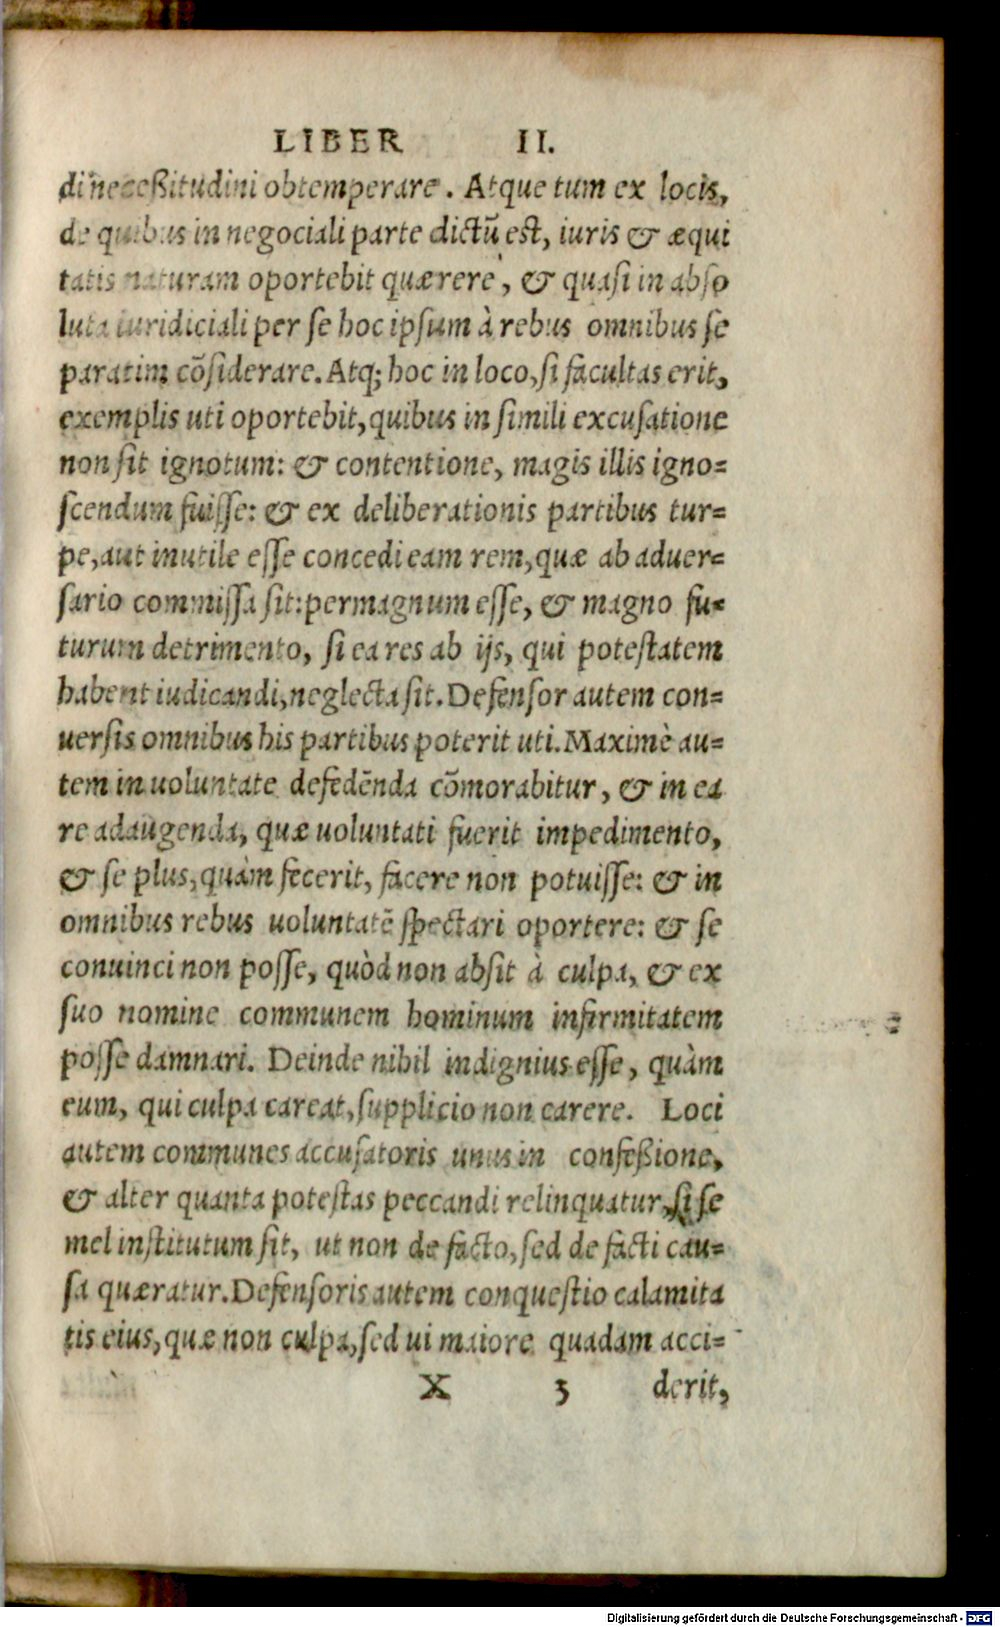 LIBER II.
di neceßitudini obtemperare. Atque tum ex locis,
de quibus in negociali parte dictū est, iuris & æqui
tatis naturam oportebit quærere, & quasi in abso
luta iuridiciali per se hoc ipsum à rebus omnibus se
paratim cōsiderare. Atq; hoc in loco, si facultas erit,
exemplis uti oportebit, quibus in simili excusatione
non sit ignotum: & contentione, magis illis igno=
scendum fuisse: & ex deliberationis partibus tur=
pe, aut inutile esse concedi eam rem, quæ ab aduer=
sario commissa sit: permagnum esse, & magno fu=
turum detrimento, si ea res ab ijs, qui potestatem
habent iudicandi, neglecta sit. Defensor autem con=
uersis omnibus his partibus poterit uti. Maximè au=
tem in uoluntate defedēnda cōmorabitur, & in ea
re adaugenda, quæ uoluntati fuerit impedimento,
& se plus, quàm fecerit, facere non potuisse: & in
omnibus rebus uoluntatē spectari oportere: & se
conuinci non posse, quòd non absit à culpa, & ex
suo nomine communem hominum infirmitatem
posse damnari. Deinde nihil indignius esse, quàm
eum, qui culpa careat, supplicio non carere. Loci
autem communes accusatoris unus in confeßione,
& alter quanta potestas peccandi relinquatur, si se
mel institutum sit, ut non de facto, sed de facti cau=
sa quæratur. Defensoris autem conquestio calamita
tis eius, quæ non culpa, sed ui maiore quadam acci=
X 3 derit,
Digitalisierung gefördert durch die Deutsche Forschungsgemeinschaft - DFG